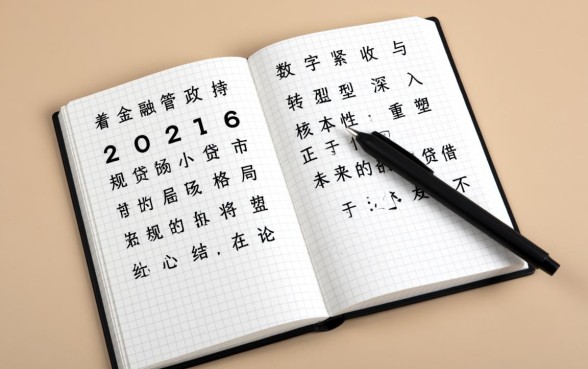 着金融管政持
20216
规贷小贷市
的局格局
规的将盟
心结,在论
数字紧收与
转型型深入
核本性:重塑
正于
未来的贷借
于友不